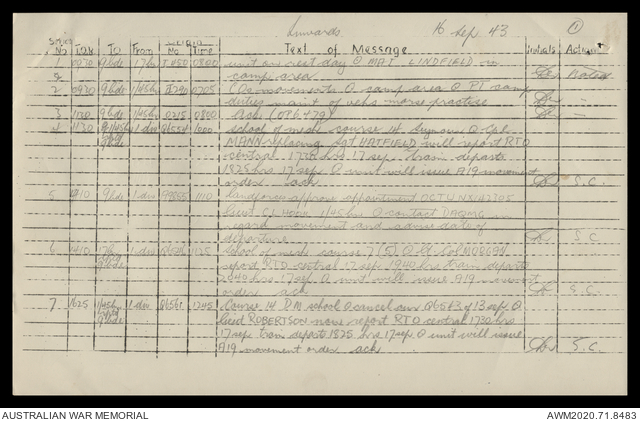 Inwards 16 Sep 43 1
Serial No T.O.R To From Number Time Text of Message Initials Action
1 0930 9 bde 17 bn 0800 unit on rest day O MAJ LINDFIELD in
camp area
2 0930 9 bde 1/45 bn 0705 COs movements O camp area O PT camp
duties maint of vehs morse practise
3 9 bde 1/45 bn 0215 0800
4 1130 1 div 1000 school of mech course 14 Seymour O Cpl
MANN replacing Sgt HATFIELD will report RTO
central 1730 hrs 17 sep train departs
1825 hrs 17 sep O unit will issue A19 movement
order ack S.C.
5 1410 9 bde 1 div 1110 landforces approve appointment OCTU
Lieut 1/45 bn O contact DAQMG in
regard movement and advise date of
departure S.C.
6 1410 9 bde 1 div 1125 School of mech course 7 (5) O Lt Col
report RTO central 17 sep 1940 hrs train departs
2040 hrs 17 sep O unit will issue A19 movement
order ack S.C.
7 1625 1/45 bn 9 bde 1 div 1245 Course 14 DM school O cancel our Q6543 of 13 sep O
Lieut ROBERTSON now report RTO central 1730 hrs
17 sep train depart 1825 hrs 17 sep O unit will issue
A19 movement order ack S.C.
AUSTRALIAN WAR MEMORIAL AWM2020.71.8483